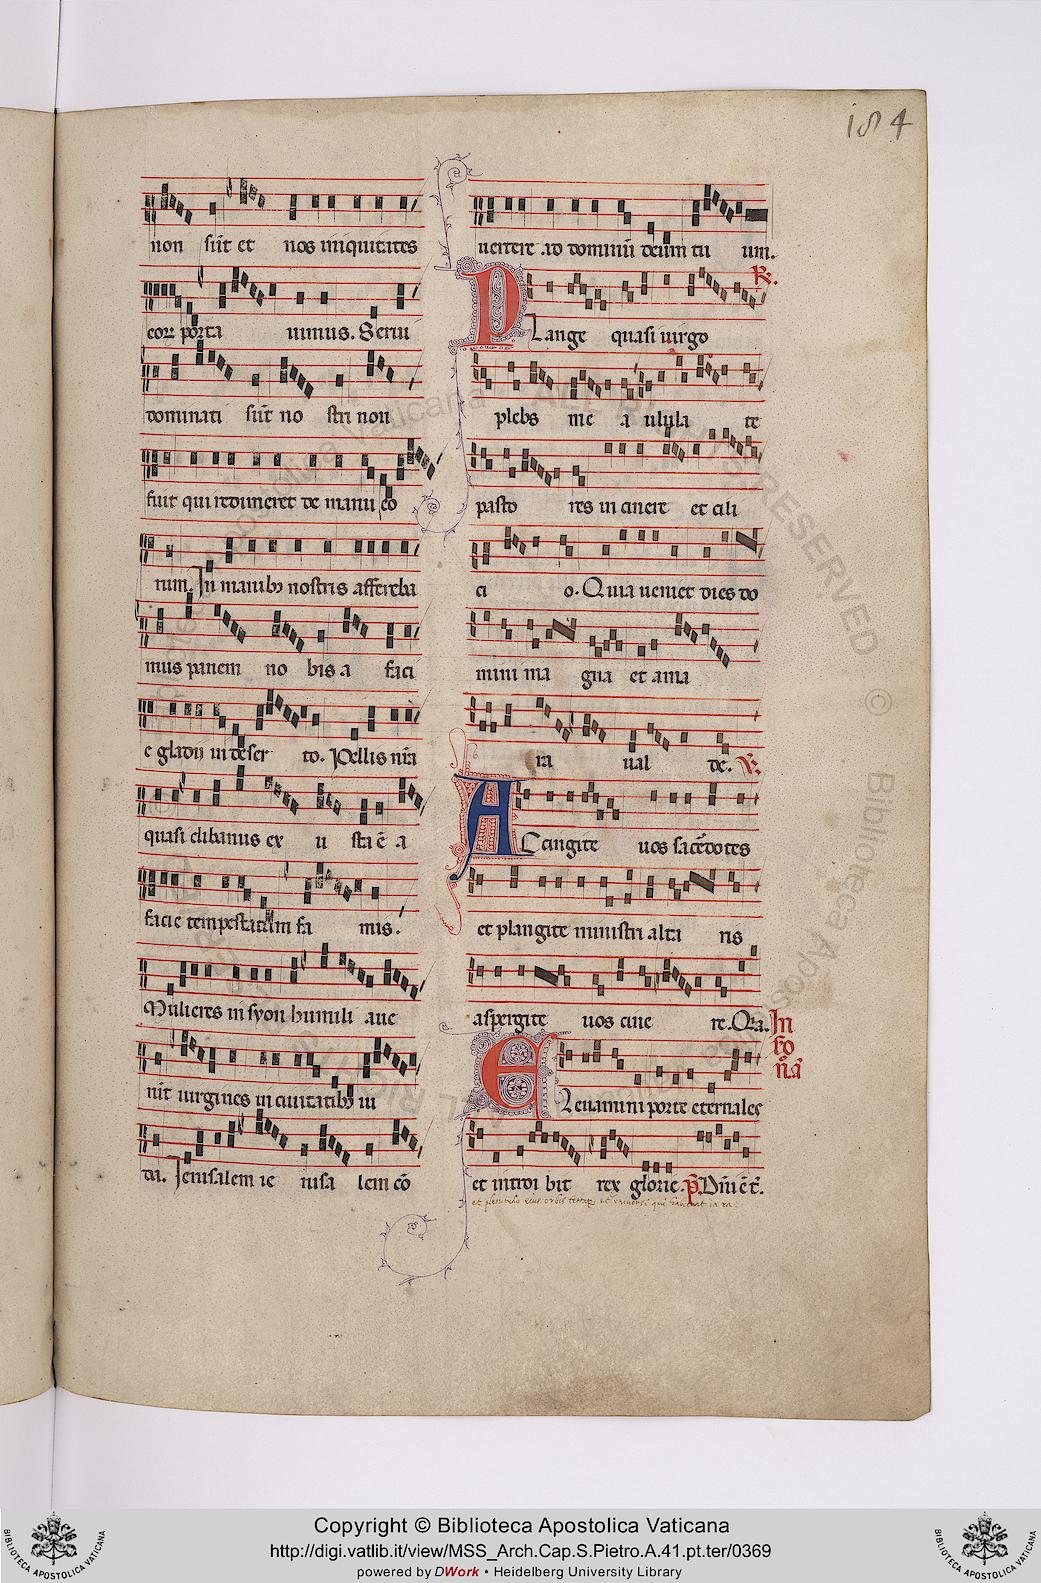 184
non sūt et nos iniquitates
eorꝝ porta uimus. Serui
dominati sūt no stri non
fuit qui redimeret de manu eo
rum. In manibꝫ nostris affereba
mus panem no bis a faci
e gladii in deser to. Pellis nr̄a
quasi clibanus ex u sta ē a
facie tempestatum fa mis.
Mulieres in syon humili aue
rūt uirgines in ciuitatibꝫ iu
da. Jerusalem ie rusa lem cō
uertere ad dominū deum tu um.
R.
Plange quasi uirgo
plebs me a ulula te
pasto res in cinere et cili
ci o. Quia ueniet dies do
mini ma gna et ama
ra ual de. V.
Accingite uos sacēdotes
et plangite ministri alta ris
aspergite uos cine re. Q̄a.
In
Eleuamini porte eternales
et introi bit rex glorie. p̄. Dn̄i ē t̄.
et plenitudo eius orbis terrarꝫ et universi qui
Copyright © Biblioteca Apostolica Vaticana
http://digi.vatlib.it/view/MSS_Arch.Cap.S.Pietro.A.41.pt.ter/0369
powered by DWork • Heidelberg University Library
BIBLIOTECA APOSTOLICA VATICANA
BIBLIOTECA APOSTOLICA VATICANA